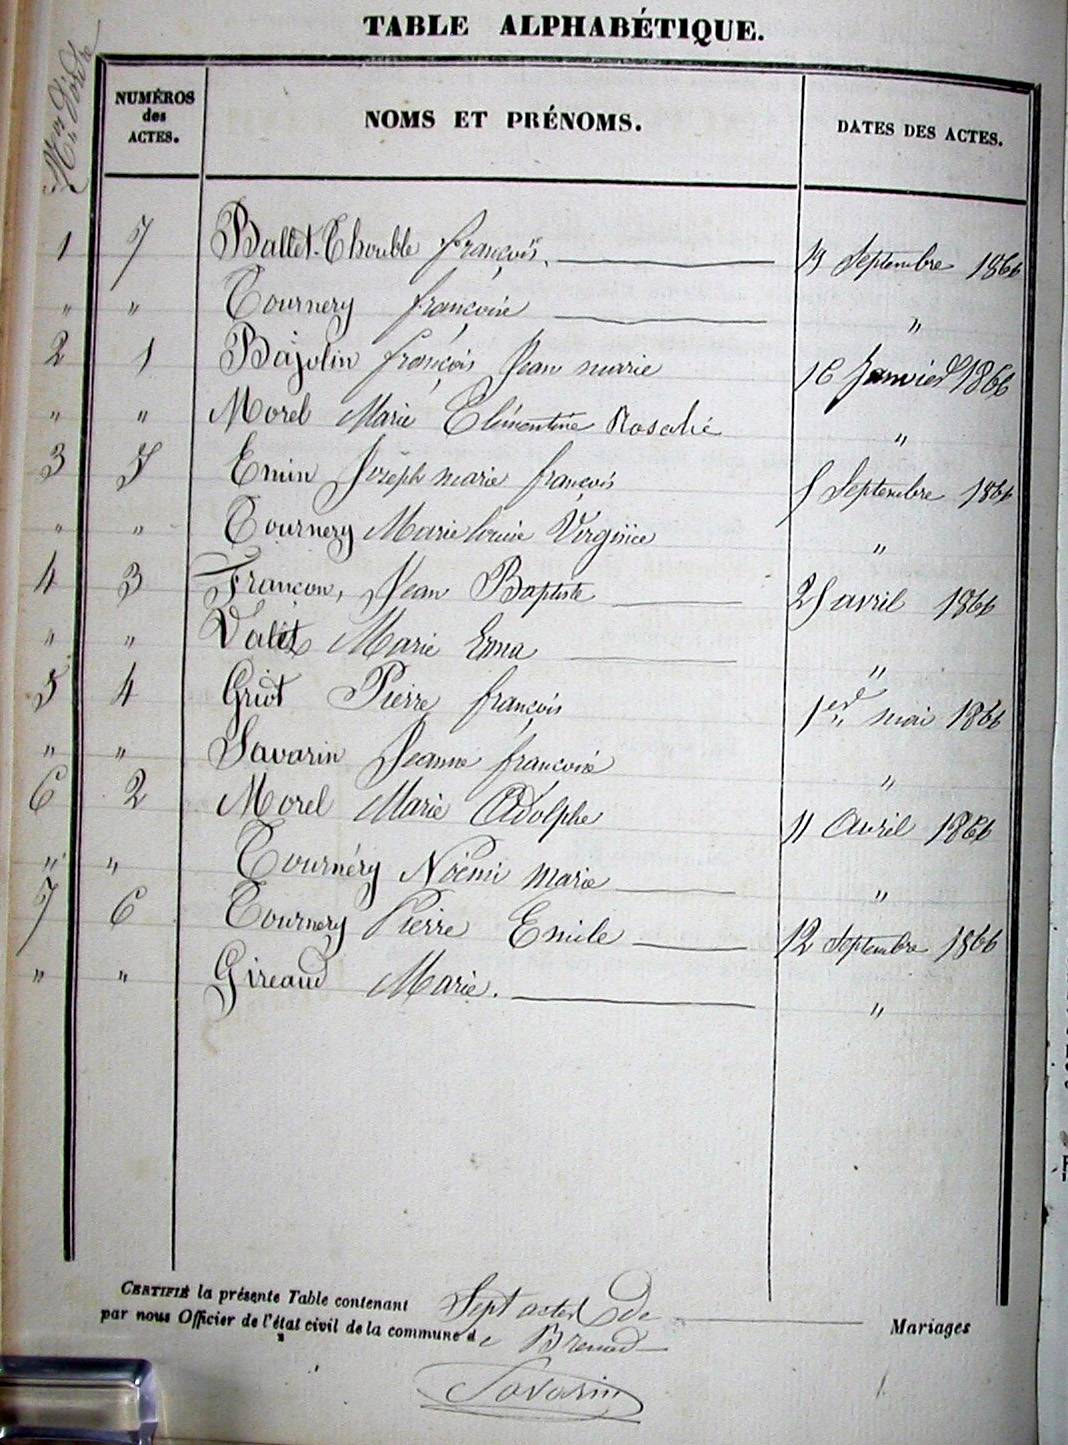 TABLE ALPHABÉTIQUE.
Nos d'ordre
NUMÉROS des ACTES. NOMS ET PRÉNOMS. DATES DES ACTES.
1 7 Ballet-Thouble françois. 19 Septembre 1866
" " Tournery françoise "
2 1 Bajolin françois Jean marie 16 Janvier 1866
" " Morel Marie Clémentine Rosalie "
3 5 Emin Joseph marie françois 5 Septembre 1866
" " Tournery Marie louise Virginie "
4 3 Françon, Jean Baptiste 25 avril 1866
" " Valet Marie Erna "
5 4 Griot Pierre françois 1er mai 1866
" " Savarin Jeanne françoise "
6 2 Morel Marie Adolphe 11 Avril 1866
" " Tournéry Noémi marie "
7 6 Tournery Pierre Emile 12 Septembre 1866
" " Gireaud Marie. "
CERTIFIÉ la présente Table contenant Sept actes de Mariages
par nous Officier de l'état civil de la commune de Brenod
Savarin